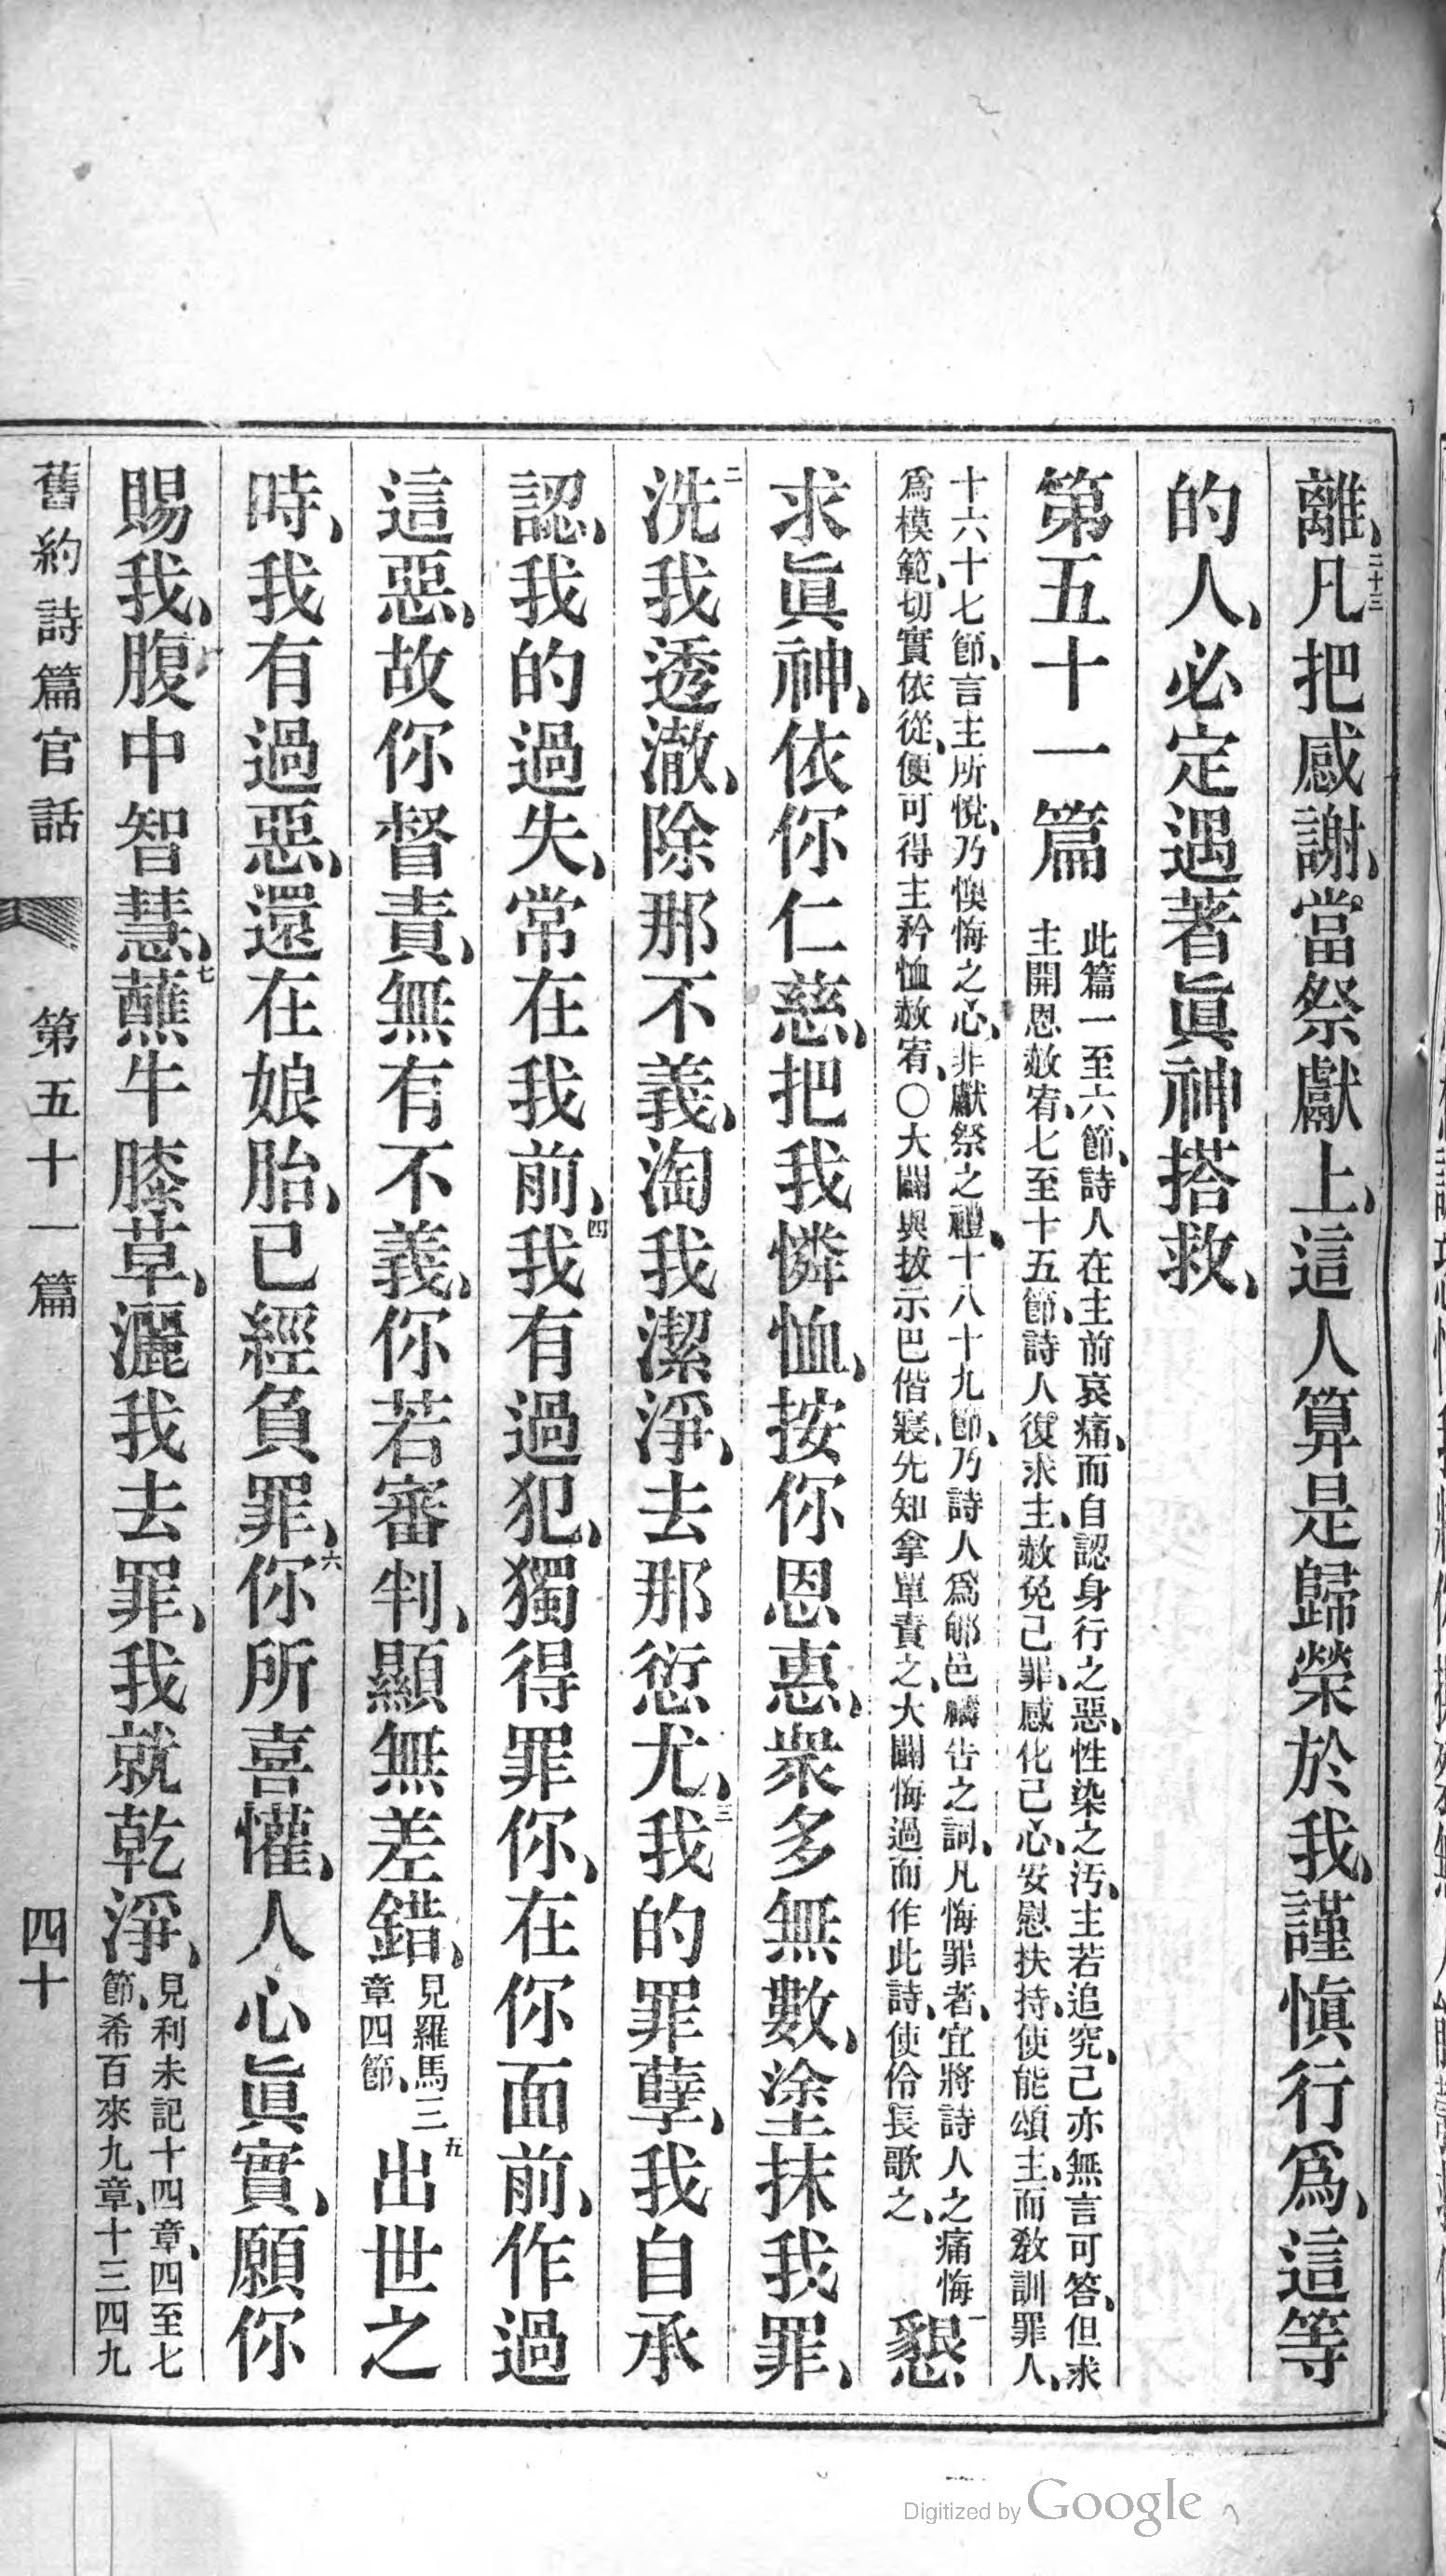 離、二十三凡把感謝、當祭獻上、這人算是歸榮於我、謹愼行爲、這等
的人、必定遇著眞神搭救、
第五十一篇
此篇一至六節、詩人在主前哀痛、而自認身行之惡、性染之汚、主若追究、己亦無言可答、但求
主開恩赦宥、七至十五節、詩人復求主、赦免己罪、感化己心、安慰扶持、使能頌主、而敎訓罪人、
十六十七節、言主所悅、乃懊悔之心、非獻祭之禮、十八十九節、乃詩人爲郇邑禱告之詞、凡悔罪者、宜將詩人之痛悔
爲模範、切實依從、便可得主矜恤赦宥、〇大闢與拔示巴偕寢、先知拿單責之、大闢悔過而作此詩、使伶長歌之、
一懇
求眞神、依你仁慈、把我憐恤、按你恩惠、衆多無數、塗抹我罪、
二洗我透澈、除那不義、淘我潔淨、去那愆尤、三我的罪孽、我自承
認、我的過失、常在我前、四我有過犯、獨得罪你、在你面前、作過
這惡、故你督責、無有不義、你若審判、顯無差錯、見羅馬三章四節、五出世之
時、我有過惡、還在娘胎、已經負罪、六你所喜懽、人心眞實、願你
賜我、腹中智慧、七蘸牛膝草、灑我去罪、我就乾淨、見利未記十四章、四至七節、希百來九章、十三四九
舊約詩篇官話 第五十一篇 四十
Digitized by Google